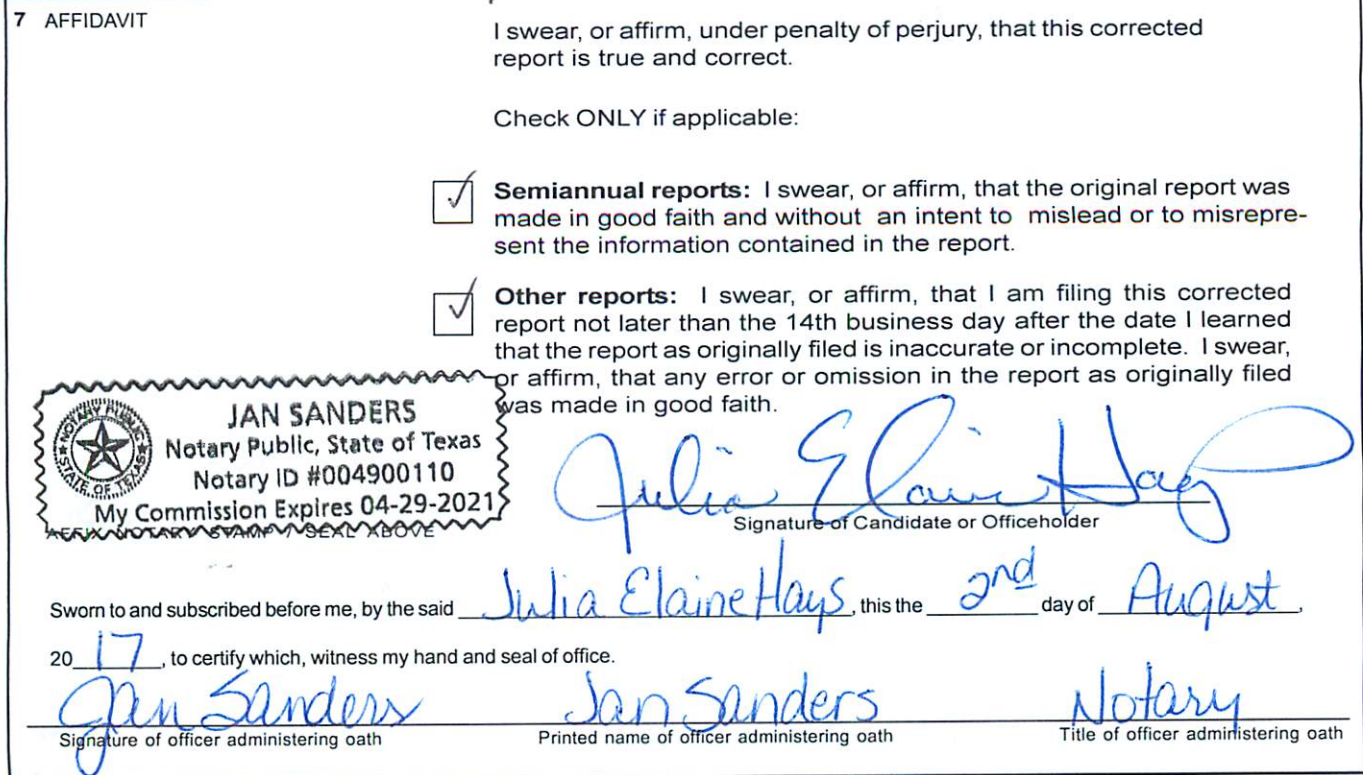 7 AFFIDAVIT
I swear, or affirm, under penalty of perjury, that this corrected
report is true and correct.
Check ONLY if applicable:
✓ Semiannual reports: I swear, or affirm, that the original report was
made in good faith and without an intent to mislead or to misrepre-
sent the information contained in the report.
✓ Other reports: I swear, or affirm, that I am filing this corrected
report not later than the 14th business day after the date I learned
that the report as originally filed is inaccurate or incomplete. I swear,
or affirm, that any error or omission in the report as originally filed
was made in good faith.
NOTARY PUBLIC
STATE OF TEXAS
JAN SANDERS
Notary Public, State of Texas
Notary ID #004900110
My Commission Expires 04-29-2021
AFFIX NOTARY STAMP / SEAL ABOVE
Julia Elaine Hays
Signature of Candidate or Officeholder
Sworn to and subscribed before me, by the said Julia Elaine Hays, this the 2nd day of August,
2017, to certify which, witness my hand and seal of office.
Jan Sanders Jan Sanders Notary
Signature of officer administering oath Printed name of officer administering oath Title of officer administering oath